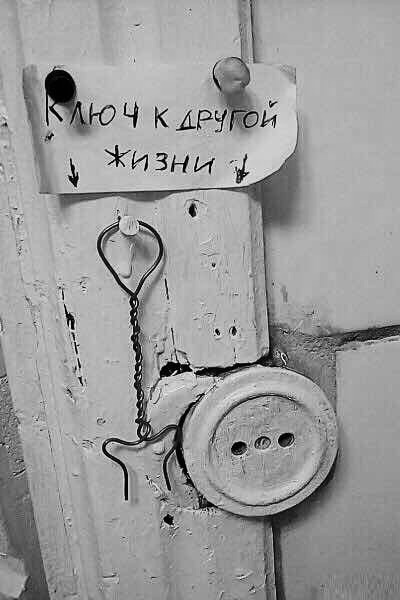 Ключ к другой
жизни